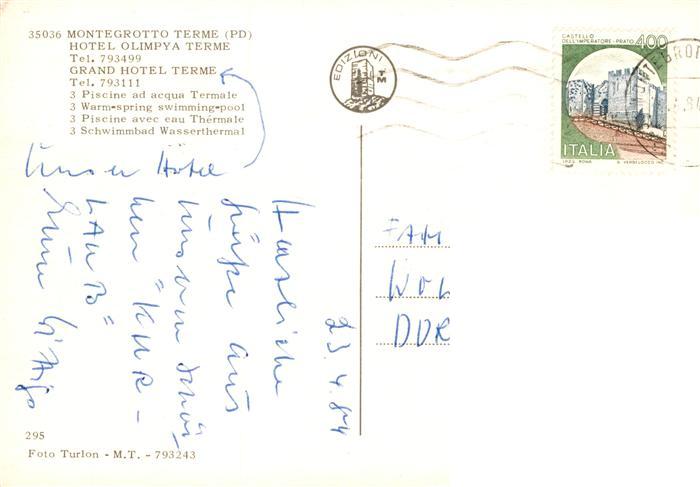 35036 MONTEGROTTO TERME (PD)
HOTEL OLIMPYA TERME
Tel. 793499
GRAND HOTEL TERME
Tel. 793111
3 Piscine ad acqua Termale
3 Warm-spring swimming-pool
3 Piscine avec eau Thérmale
3 Schwimmbad Wasserthermal
EDIZIONI
TM
CASTELLO
DELL'IMPERATORE-PRATO
400
ITALIA
Unser Hotel
23.4.84
Herzliche
Grüße aus
unserem schö-
nen "KUR-
LAUB"
FAM
WOL
DDR
295
Foto Turlon - M.T. - 793243